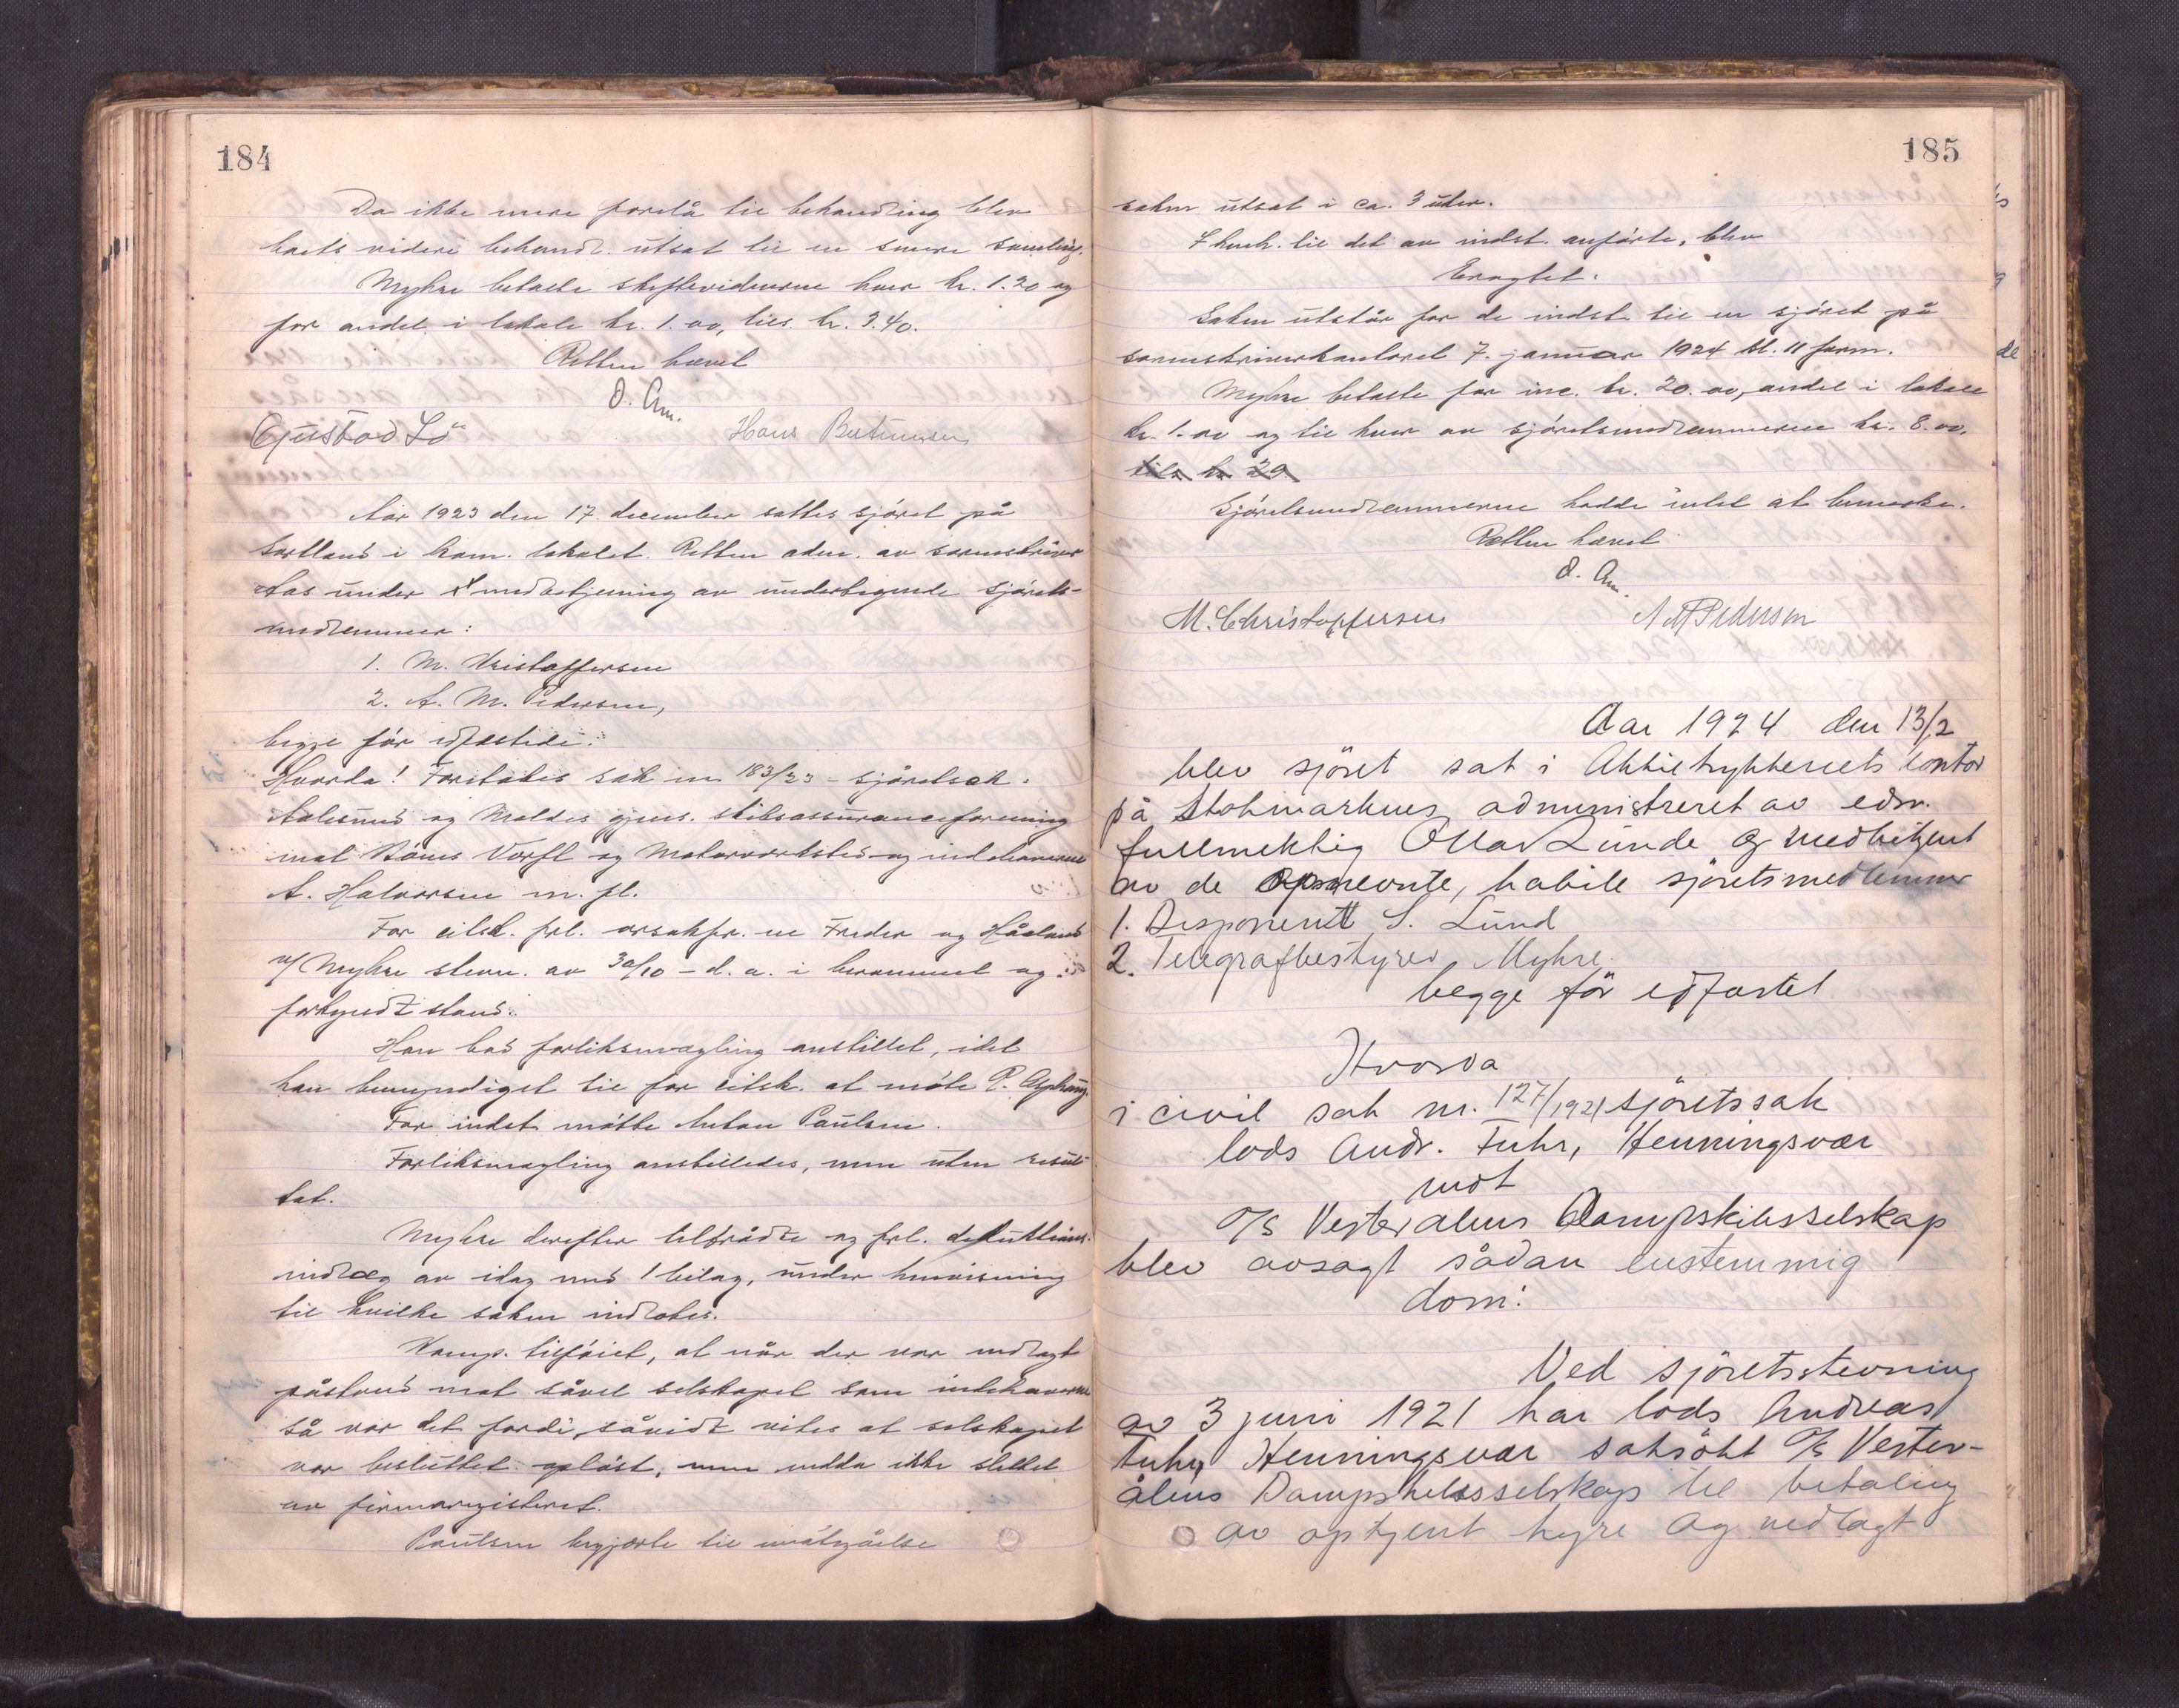 184
Da ikke mere forelå til behandling blev
boets videre behandl. utsat til en senere samling.
Myhre betalte skiftevidnerne hver kr. 1.20 og
for andel i lokale kr. 1.00, tils. kr. 3.40.
Retten hævet
O. Am.
Gustav Lö Hans
Aar 1923 den 17 december sattes sjöret på
Sortland i kom. lokalet. Retten adm. av sorenskriver
Aas under medbetjening av undertegnede sjörets-
medlemmer:
1. M. Kristoffersen
2. A. M. Pedersen,
begge för edfæstede.
Hvorda! Foretokes sak nr 183/23 - sjöretsak.
Aalesunds og Moldes gjens. skibsassuranceforening
mot Værft og Motorverksted og indehaverne
A. Halvorsen m. fl.
For citst. frl. orsakfr. ne Freder og Håland
v/ Myhre stevn. av 30/10 - d. a. i berammet og
forkyndt stand.
Han bad forliksmægling anstillet, idet
han bemyndiget til for citsk. at möte P.
For indst. mötte Anton Paulsen.
Forliksmægling anstilledes, men uten resul-
tat.
Myhre derefter tiltrådte og frl.
indlæg av idag med 1 bilag, under henvisning
til hvilke saken indlates.
Komp. tilföiet, at når der var nedlagt
påstand mot såvel selskapet som indehaverne
så var det fordi, såvidt vites at selskapet
var besluttet oplöst, men endda ikke slettet
av firmaregisteret.
Paulsen begjærte til imötegåelse
185
saken utsat i ca. 3 uker.
I henh. til det av indst. anförte, blev
Eragtet:
Saken utstår for de indst. til en sjöret på
sorenskriverkontoret 7. januar 1924 kl. 11 form.
Myhre betalte for inc. kr. 20.00, andel i lokale
kr. 1.00 og til hver av sjöretsmedlemmerne kr. 8.00.
tils. kr 29
Sjöretsmedlemmerne hadde intet at bemerke.
Retten hævet
O. Am.
M. Christoffersen A M Pedersen
Aar 1924 den 13/2
blev sjöret sat i Aktietrykkeriets kontor
på Stokmarknes administreret av edsv.
fullmektig Ottar Lunde og medbetjent
av de opnevnte, habile sjöretsmedlemmer
1. Disponent S. Lund
2. Telegrafbestyrer Myhre.
begge för edfæstet
Hvorda
i civil sak nr. 127/1921 sjöretssak
lods Andr. Fuhr, Henningsvær
mot
A/S Vesteraalens Dampskibsselskap
blev avsagt sådan enstemmig
dom:
Ved sjöretsstevning
av 3 juni 1921 har lods Andreas
Fuhr, Henningsvær saksökt A/S Vester-
ålens Dampskibsselskap til betaling
av optjent hyre og nedlagt